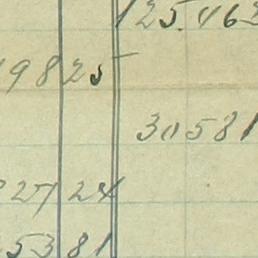 125.462
19825
30581
22724
5381